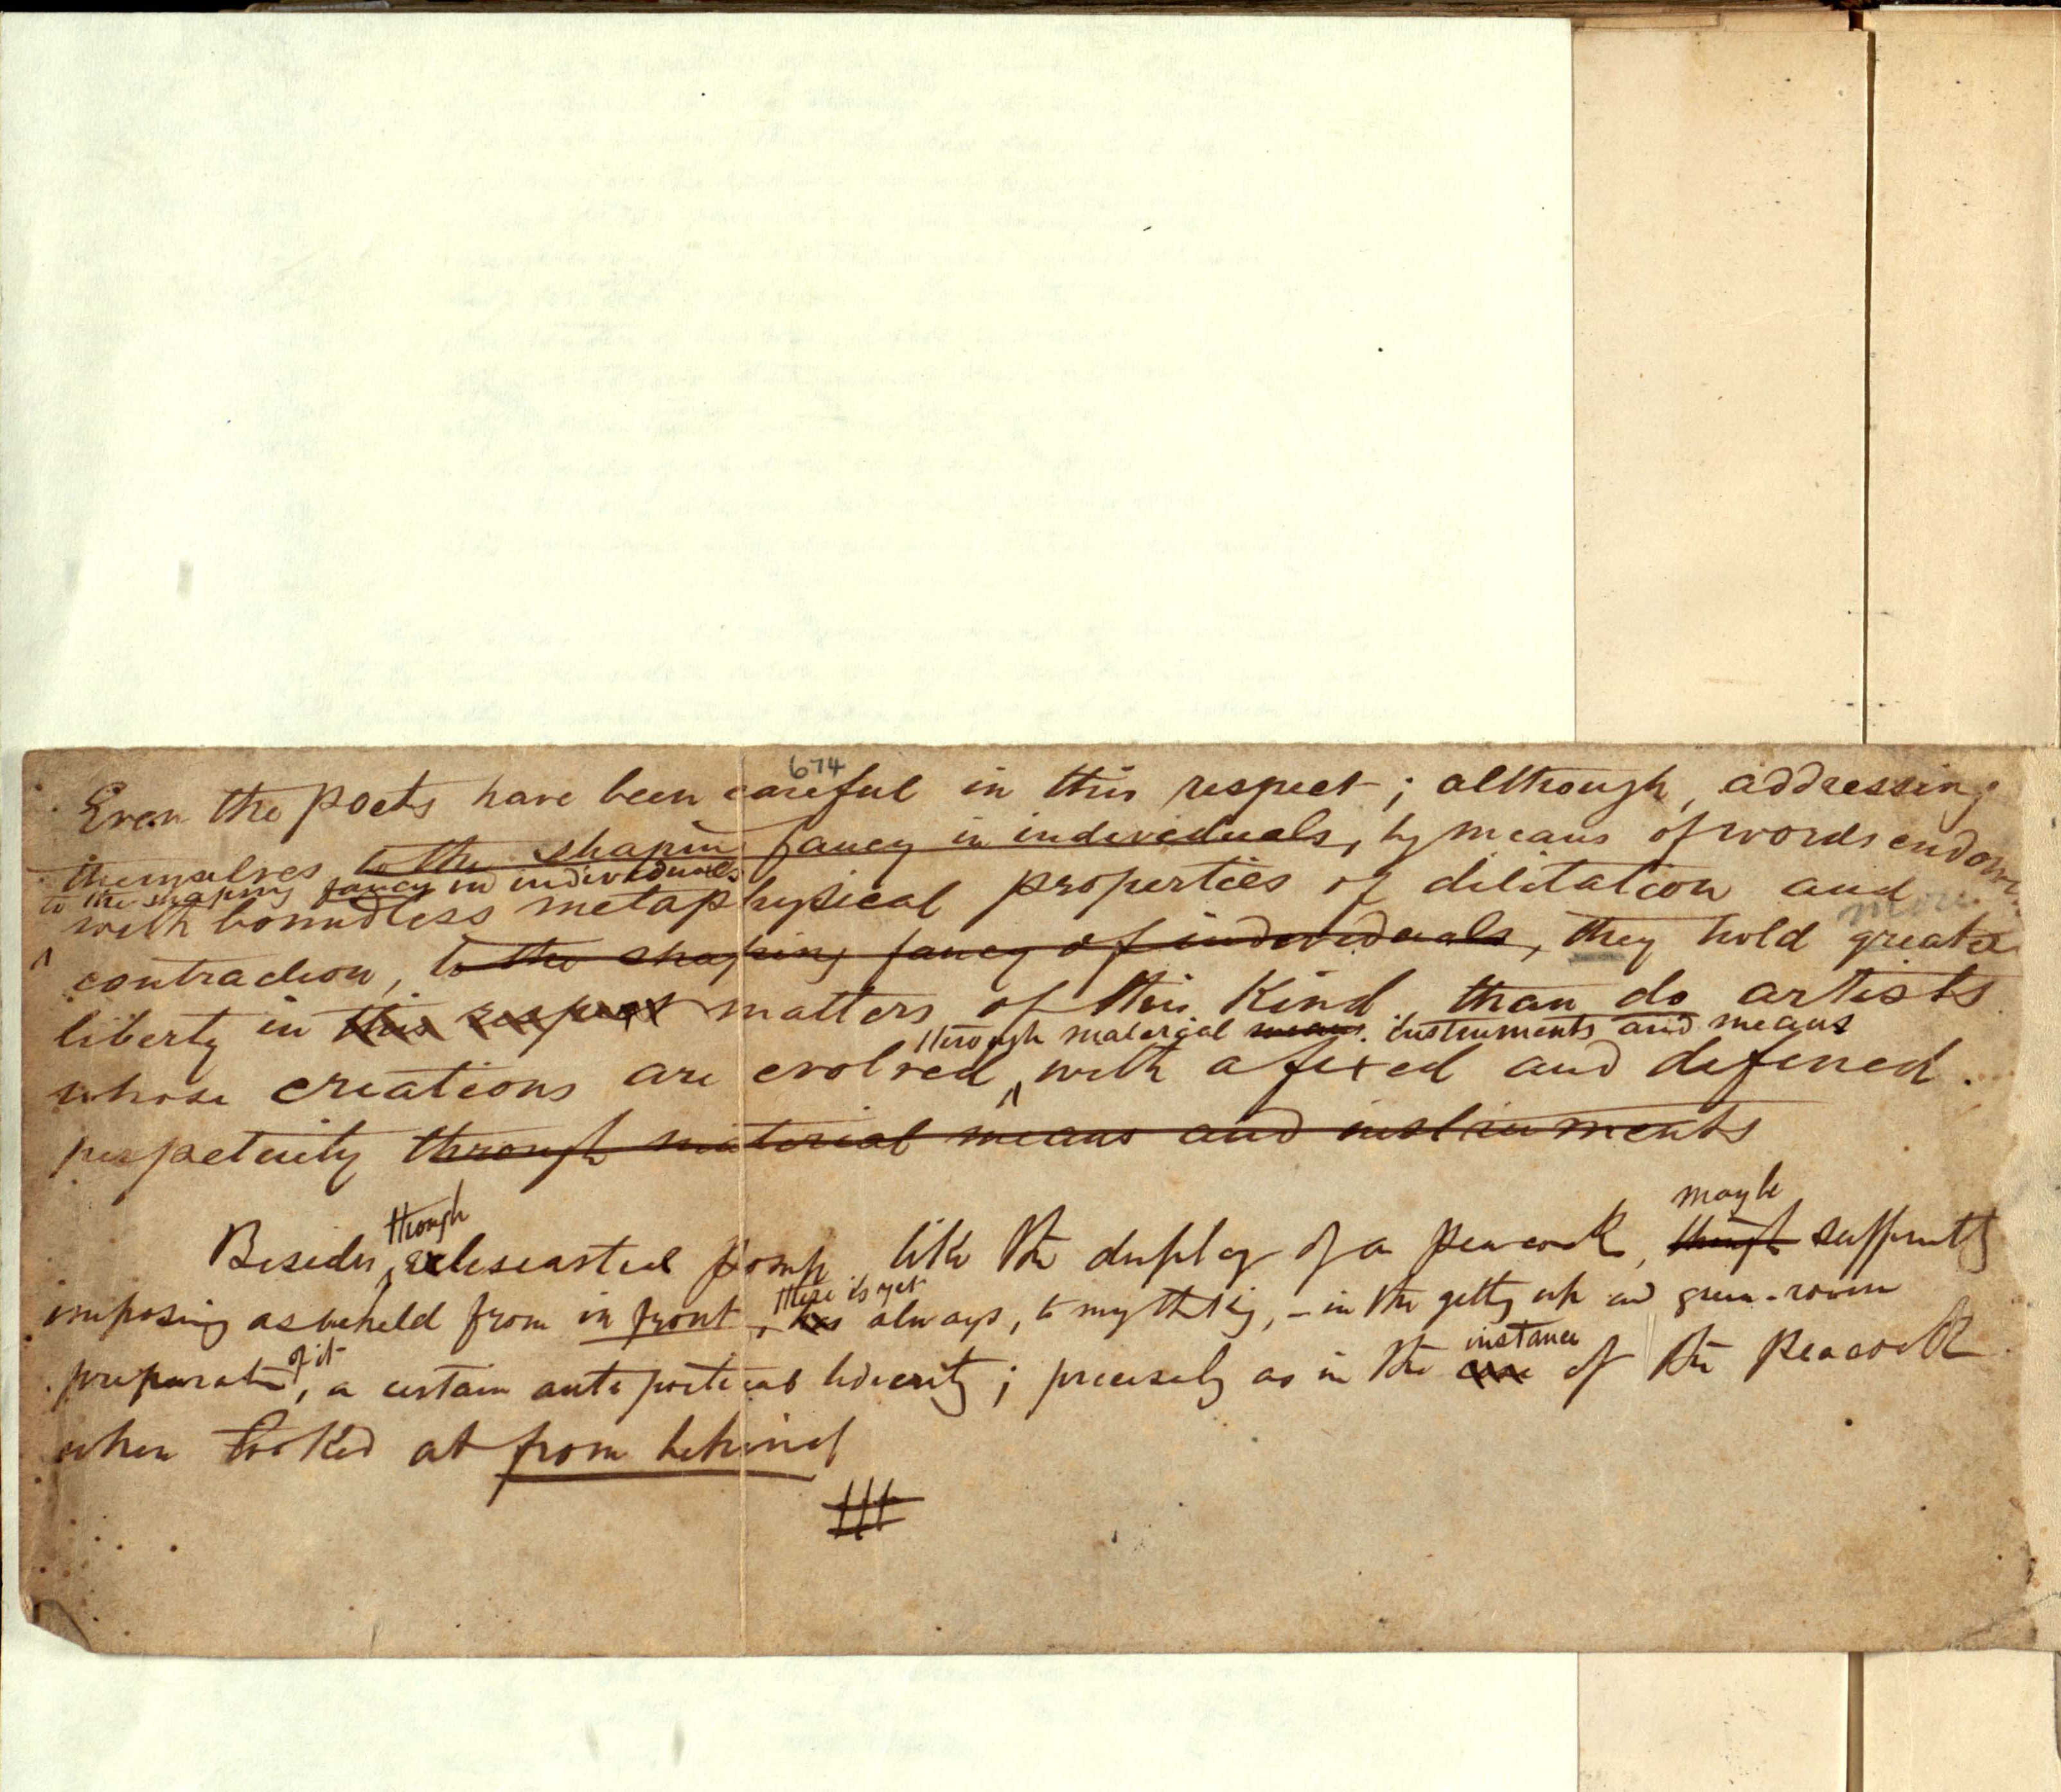 674
Even the poets have been careful in this respect; although, addressing
themselves to the shaping fancy in individuals, by means of words endow
to the shaping fancy in individuals
with boundless metaphysical properties of dilitation and
more
contraction, to the shaping fancy of individuals, they hold greater
liberty in this respect matters of this Kind, than do artists
through material means instruments and means
whose creations are evolved, with a fixed and defined
perpetuity through material means and instruments
though maybe
Besides, eclesiastical pomp, like the display of a peacock, though sufficiently
there is yet
imposing as beheld from in front, has always, to my thking, – in the gettg up and green-room
of it instance
preparatn, a certain anti poetical hideosity; precisely as in the case of the Peacock
when looked at from behind